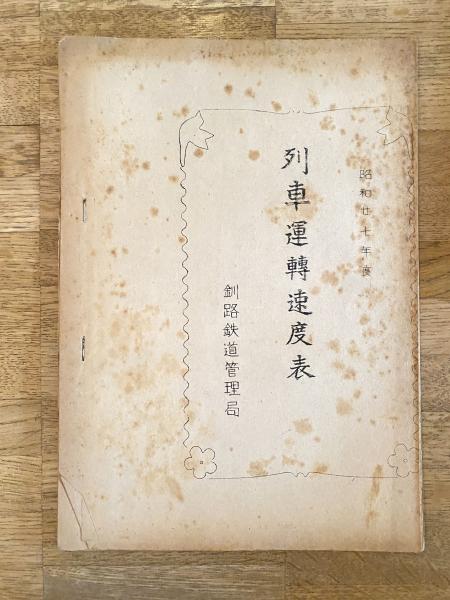 昭和廿七年度
列車運轉速度表
釧路鉄道管理局